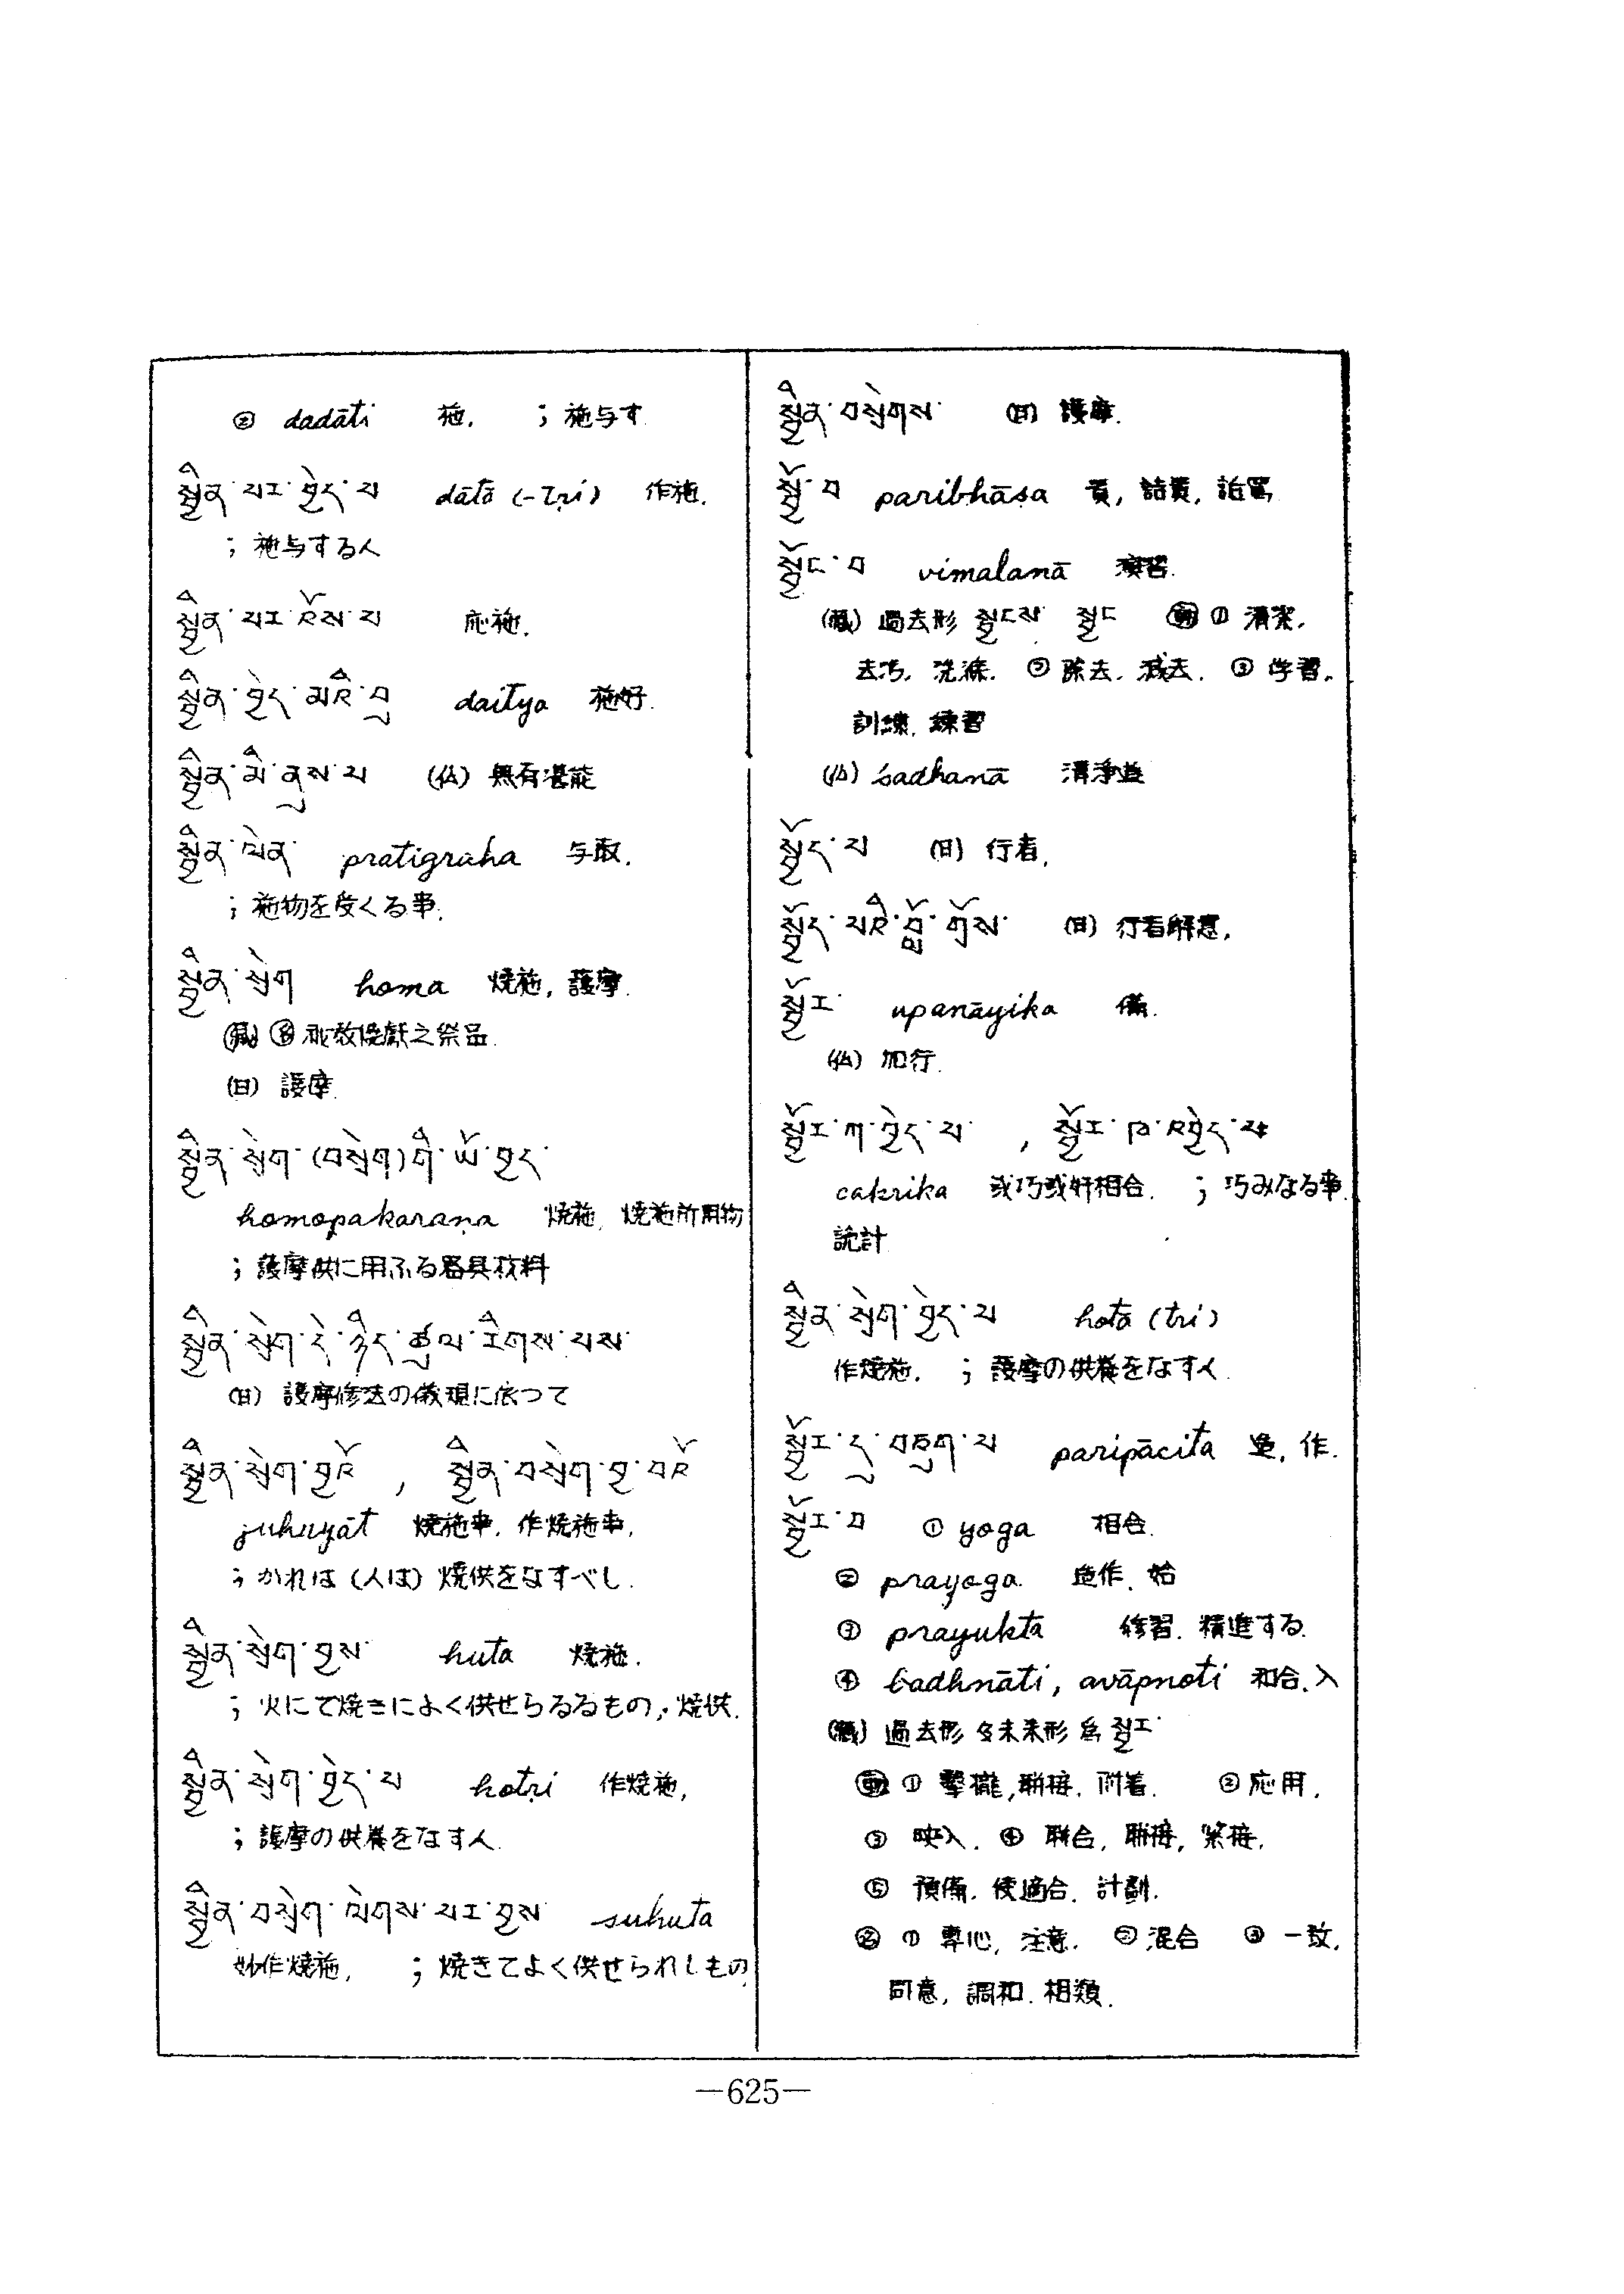 ② dadāti 施. ；施与す
སྦྱིན་པར་བྱེད་པ dātā (-tṛi) 作施.
；施与する人
སྦྱིན་པར་འོས་པ 応施.
སྦྱིན་བྱེད་མའི་བུ daitya 施好.
སྦྱིན་མི་ནུས་པ (仏) 無有堪能
སྦྱིན་ལེན་ pratigraha 与取.
；施物を受くる事.
སྦྱིན་སྲེག homa 焼施, 護摩.
(蔵) 名 秘教焼献之祭品.
(日) 護摩.
སྦྱིན་སྲེག་(བསྲེག)གི་ཡོ་བྱད་
homopakaraṇa 焼施, 焼施所用物
；護摩供に用ふる器具材料
སྦྱིན་སྲེག་དེ་ཉིད་ཚུལ་རིགས་པས་
(日) 護摩修法の儀現に依つて
སྦྱིན་སྲེག་བྱའོ , སྦྱིན་བསྲེག་བྱ་བའོ
juhuyāt 焼施事. 作焼施事.
；かれは (人は) 焼供をなすべし.
སྦྱིན་སྲེག་བྱས་ huta 焼施.
；火にて焼きによく供せらるるもの, 焼供.
སྦྱིན་སྲེག་བྱེད་པ hotṛi 作焼施,
；護摩の供養をなす人.
སྦྱིན་བསྲེག་ལེགས་པར་བྱས suhuta
妙作焼施, ；焼きてよく供せられしもの
སྦྱིན་བསྲེགས (日) 護摩.
སྦྱོ་བ paribhāṣa 責, 詰責, 詬罵
སྦྱོང་བ vimalanā 演習.
(蔵) 過去形 སྦྱངས སྦྱོང 動 ① 清潔,
去汚, 洗滌. ② 除去, 滅去. ③ 学習,
訓練, 練習
(仏) śadhanā 清浄道
སྦྱོད་པ (日) 行者,
སྦྱོད་པའི་བློ་གྲོས་ (日) 行者解慧,
སྦྱོར་ upanāyika 儀.
(仏) 加行.
སྦྱོར་ཀ་བྱེད་པ་ , སྦྱོར་ཁ་འབྱེད་པ
cakrika 或巧或奸相合. ；巧みなる事.
詭計
སྦྱིན་སྲེག་བྱེད་པ hotā (tri)
作焼施. ；護摩の供養をなす人.
སྦྱོར་དུ་བཅུག་པ paripācita 造, 作.
སྦྱོར་བ ① yoga 相合.
② prayoga 造作, 始
③ prayukta 修習. 精進する.
④ badhnāti, avāpnoti 和合. 入
(蔵) 過去形 及未来形 為 སྦྱར་
動 ① 撃攏, 聯接. 附着. ② 応用.
③ 映入. ④ 聯合, 聯接, 緊接.
⑤ 預備. 使適合. 計劃.
名 ① 専心, 注意. ② 混合 ③ 一致,
同意, 調和. 相類.
—625—